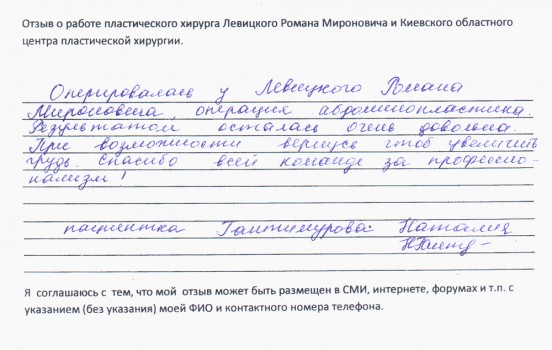 Отзыв о работе пластического хирурга Левицкого Романа Мироновича и Киевского областного
центра пластической хирургии.
Оперировалась у Левицкого Романа
Мироновича, операция абдоминопластика.
Результатом осталась очень довольна.
При возможности вернусь чтоб увеличить
грудь. Спасибо всей команде за профессио-
нализм!
пациентка Гантимурова Наталия
Я соглашаюсь с тем, что мой отзыв может быть размещен в СМИ, интернете, форумах и т.п. с
указанием (без указания) моей ФИО и контактного номера телефона.